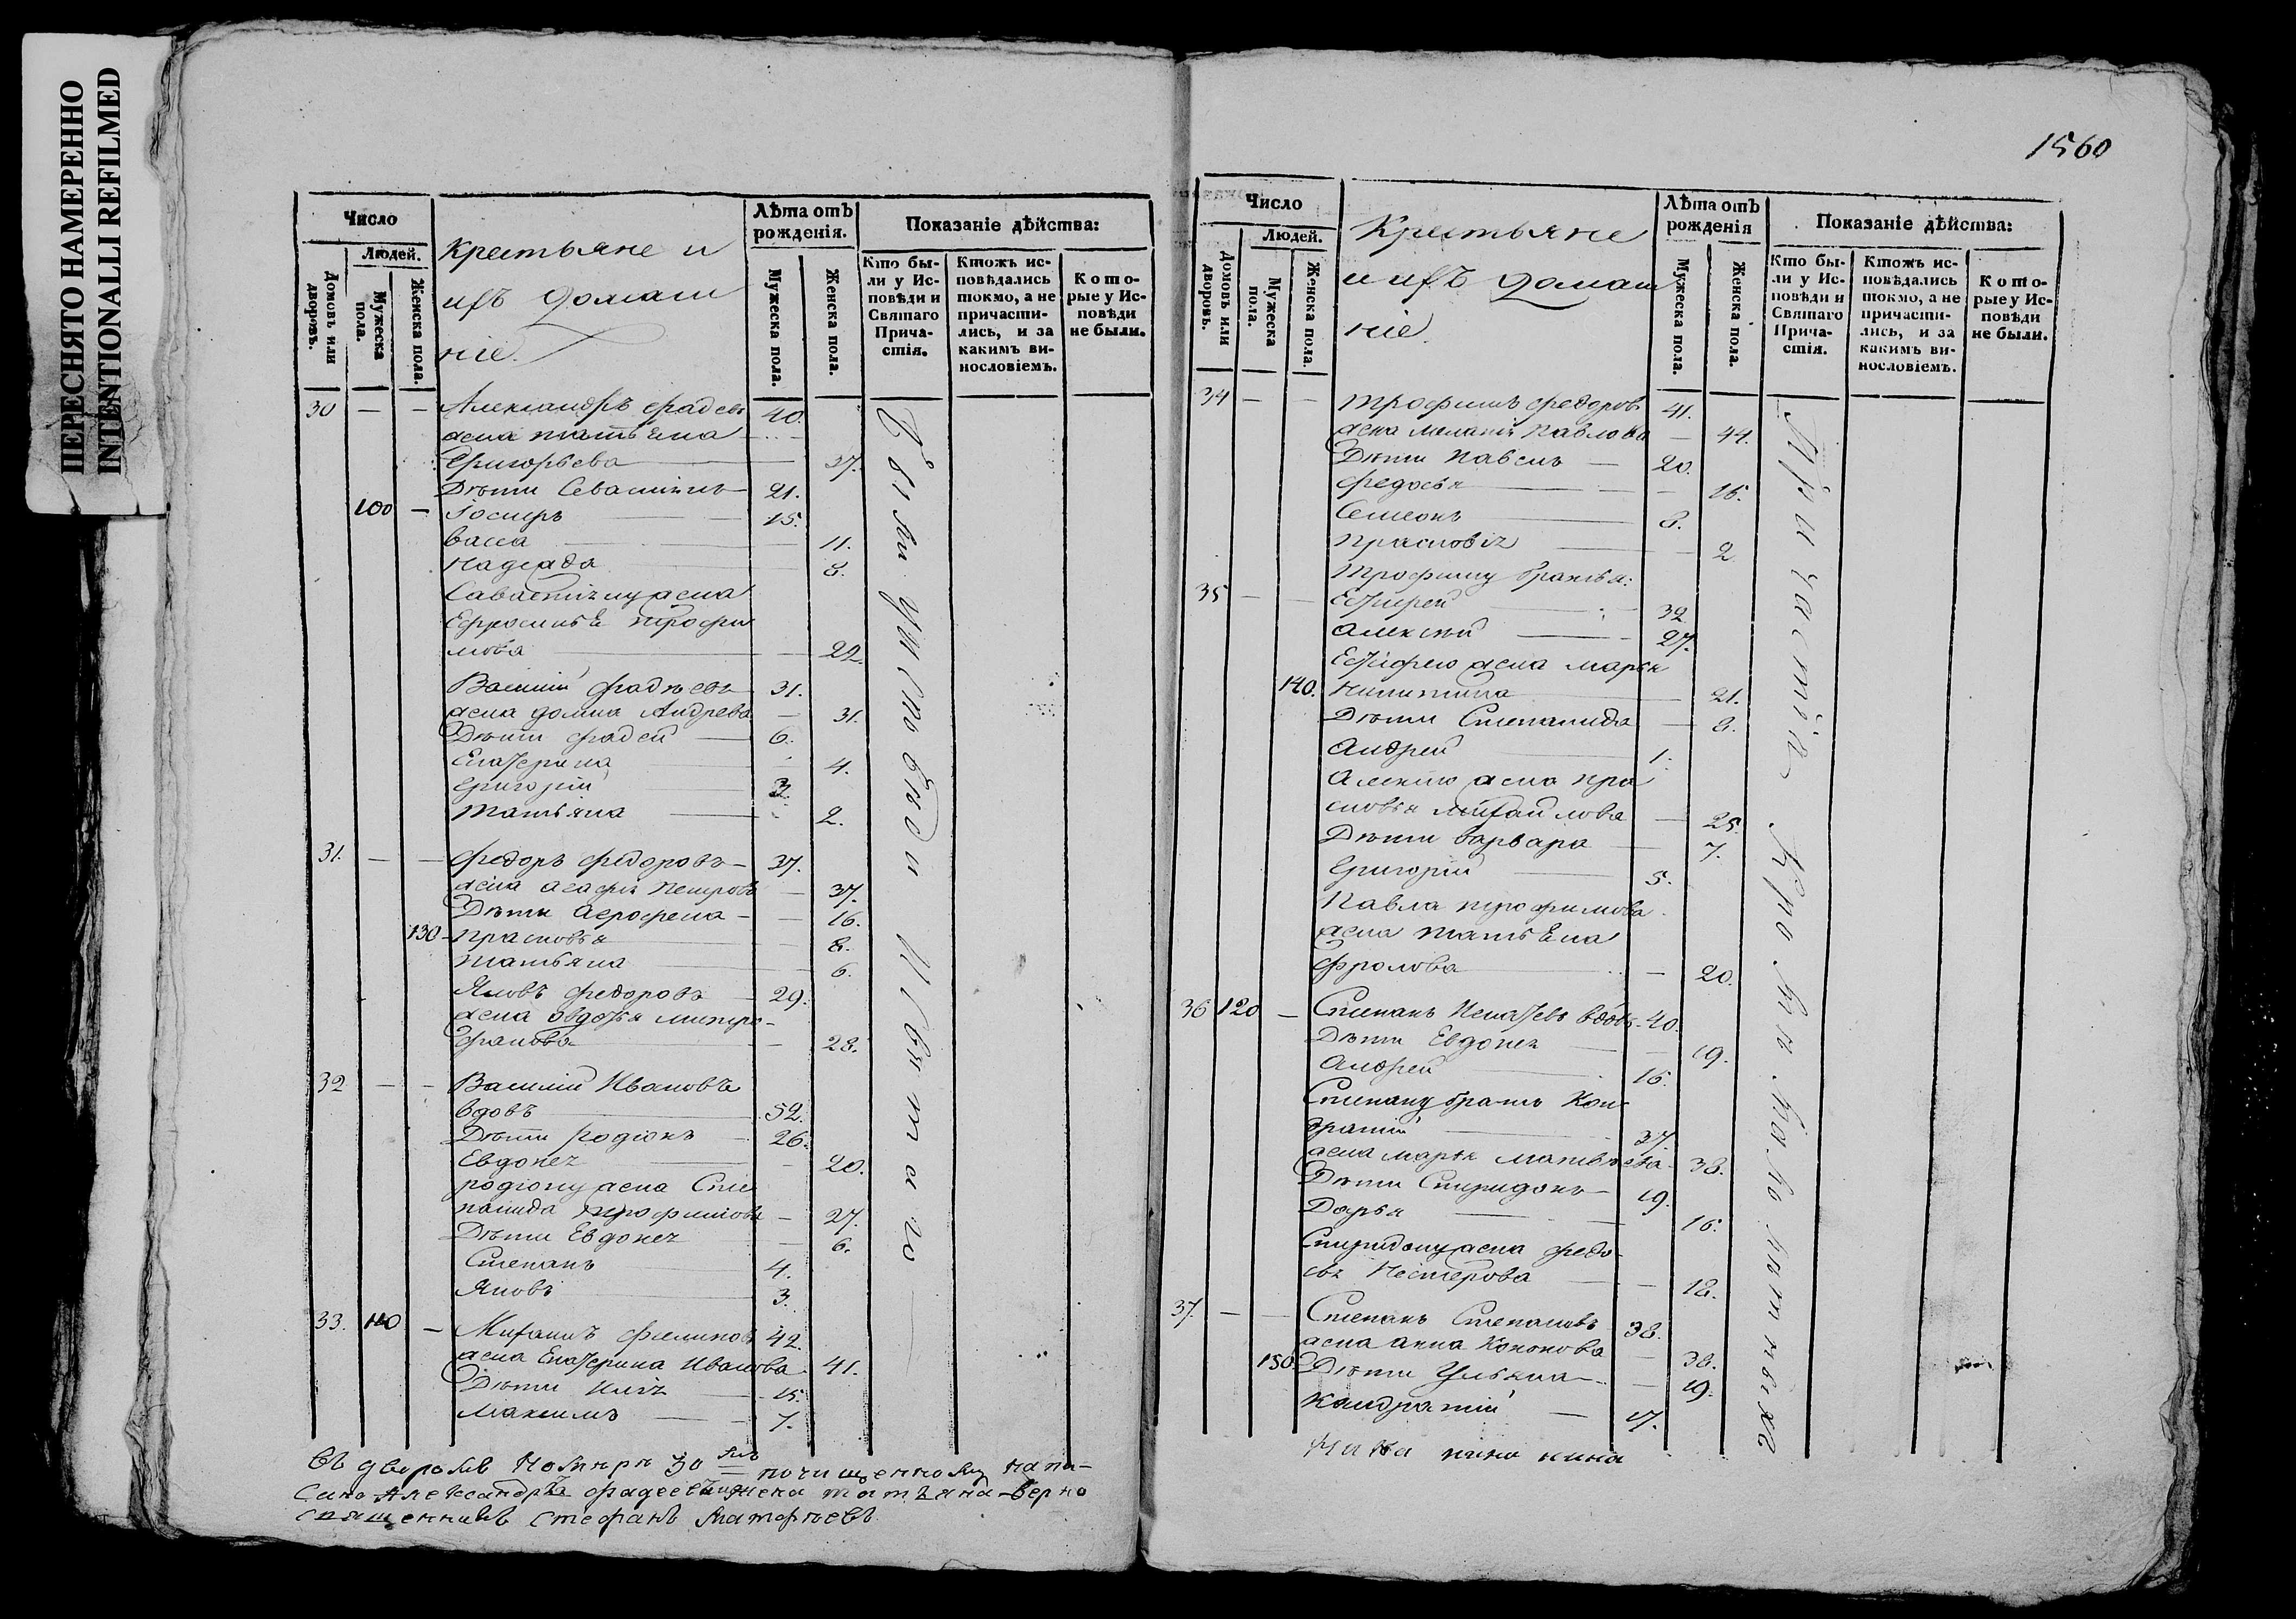 ПЕРЕСНЯТО НАМЕРЕННО
INTENTIONALLI REFILMED
Число
Людей.
Домовъ или дворовъ.
Мужеска пола.
Женска пола.
Крестьяне и
ихъ домаш
ніе.
Лѣта отъ рожденія.
Мужеска пола.
Женска пола.
Показаніе дѣйства:
Кто бы-
ли у Ис-
повѣди и
Святаго
Прича-
стія.
Ктожъ ис-
повѣдались
токмо, а не
причасти-
лись, и за
какимъ ви-
нословіемъ.
Кото-
рые у Ис-
повѣди
не были.
30 — — Александръ фадеевъ 40.
жена татьяна
Григорьева 37.
Дѣти Севастіянъ 21.
100 — Іосифъ 15.
васса 11.
надежда 8.
Савастіяну жена
Ефросинья трофи
мова 22.
Василій фадѣевъ 31.
жена домна Андрева 31.
Дѣти фадей 6.
Екатерина 4.
Григорій 3.
татьяна 2.
31. — — федоръ федоровъ 37.
жена агафія петрова 37.
Дѣти Аграфена 16.
130 прасковья 8.
татьяна 6.
Яковъ федоровъ 29.
жена овдотья митро-
фанова 28.
32 — — Василій Ивановъ
вдовъ 52.
Дѣти родіонъ 26.
Евдокея 20.
родіону жена Сте
панида трофимова 27.
Дѣти Евдокея 6.
Степанъ 4.
Яковъ 3.
33. 110 — Михаилъ филиповъ 42.
жена Екатерина Иванова 41.
Дѣти Илія 15.
Максимъ 7.
Были у Исповѣди и
Въ дворовѣ номѣрѣ 30мъ почищенному напи-
сано Александръ фадеевъ жена татьяна верно
священникъ Стефанъ Матфѣевъ
1560
Число
Людей.
Домовъ или дворовъ.
Мужеска пола.
Женска пола
Крестьяне
и ихъ домаш
ніе.
Лѣта отъ рожденія
Мужеска пола.
Женска пола.
Показаніе дѣйства:
Кто бы-
ли у Ис-
повѣди и
Святаго
Прича-
стія.
Ктожъ ис-
повѣдались
токмо, а не
причасти-
лись, и за
какимъ ви-
нословіемъ.
Кото-
рые у Ис-
повѣди
не были.
34 — — трофимъ федоровъ 41.
жена меланія павлова 44.
Дѣти павелъ 20.
федосья 16.
Семеонъ 8.
прасковія 2
трофиму братья:
35 — — 32
Алексѣй 27.
жена марья
140. никитина 21.
Дѣти Степанида 8.
Андрей 1.
Алексѣю жена пра
сковья михайлова 25.
Дѣти варвара 7.
Григорій 5.
Павла трофимова
жена татьяна
фролова 20.
36 120 — Степанъ Игнатьевъ вдовъ 40.
Дѣти Евдокея 19.
Андрей 16.
Степану братъ Кон
дратій 37.
жена марья матвѣева 38.
Дѣти Спиридонъ 19.
Дарья 16.
Спиридону жена федо-
сья Нестерова 18.
37. — — Степанъ Степановъ 38.
жена анна Кононова 38.
150. Дѣти Ульяна 19.
Кондратій 17.
Причастія